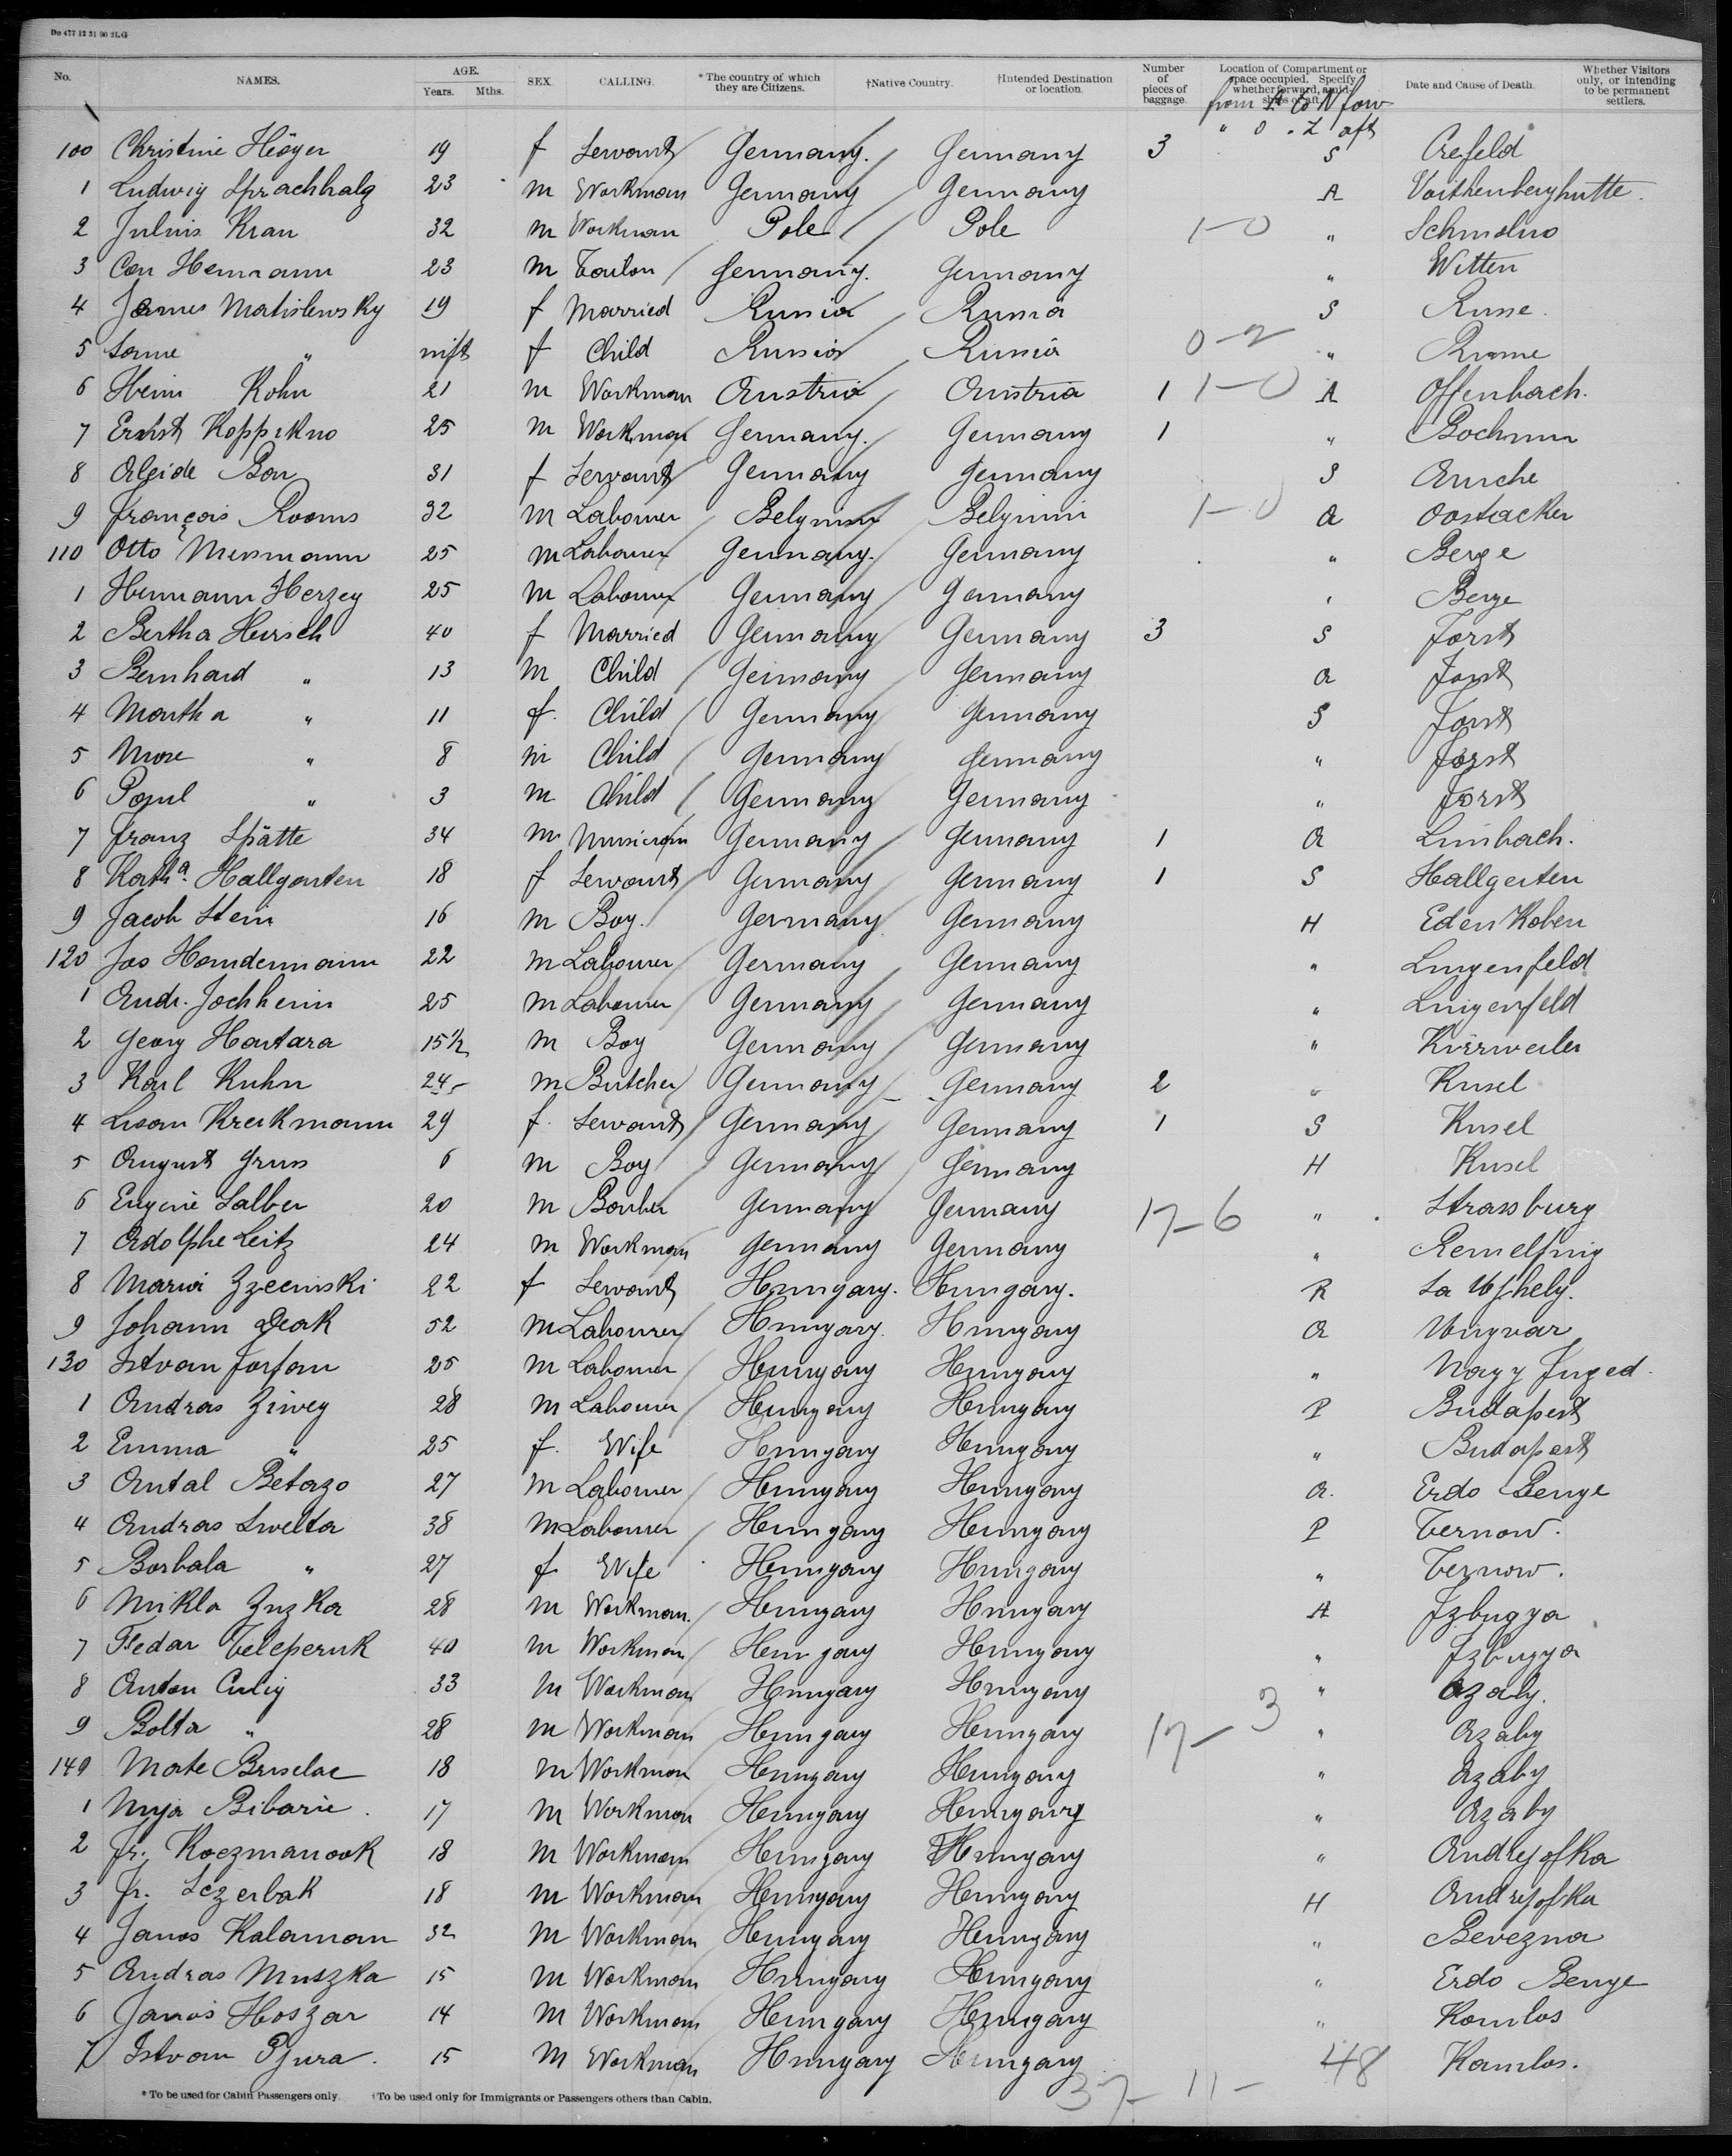 Do 477 12 31 90 2LG
No. NAMES. AGE. Years. Mths. SEX. CALLING. *The country of which they are Citizens. †Native Country. †Intended Destination or location. Number of pieces of baggage. Location of Compartment or space occupied. Specify whether forward, amidships or aft. Date and Cause of Death. Whether Visitors only, or intending to be permanent settlers.
from A to N forw
" O - Z aft
100 Christine Höyer 19 f Servant Germany. Germany 3 S Crefeld
1 Ludwig Sprachhalz 23 m Workman Germany Germany A Voithenberghutte.
2 Julius Kran 32 m Workman Pole Pole 1-0 " Schmolno
3 Con Hemann 23 m Germany. Germany " Witten
4 James Matislewsky 19 f Married Russia Russia S Russe.
5 Same " inft f Child Russia Russia 0-2 "
6 Heim Kohn 21 m Workman Austria Austria 1 1-0 A Offenbach.
7 Ernst Koppikno 25 m Workman Germany. Germany 1 " Bochum
8 Aleide Bon 31 f Servant Germany Germany S Anche
9 François Rooms 32 m Labourer Belgium Belgium 1-0 a Oostacker
110 Otto Mensmann 25 m Labourer Germany. Germany " Berge
1 Hermann Herzey 25 m Labourer Germany Germany " Berge
2 Bertha Hirsch 40 f Married Germany Germany 3 S Forst
3 Bernhard " 13 m Child Germany Germany a Forst
4 Martha " 11 f. Child Germany Germany S Forst
5 Max " 8 m Child Germany Germany " Forst
6 Paul " 3 m Child Germany Germany " Forst
7 Franz Spätte 34 m Musician Germany Germany 1 a Limbach.
8 Katha. Hallgarten 18 f Servant Germany Germany 1 S Hallgerten
9 Jacob Stein 16 m Boy. Germany Germany H Eden Koben
120 Jos Handermann 22 m Labourer Germany Germany " Lingenfeld
1 Andr. Jochheim 25 m Labourer Germany Germany " Lingenfeld
2 Georg Hartara 15½ m Boy Germany Germany " Kirrweiler
3 Karl Kuhn 24 m Butcher Germany Germany 2 " Kusel
4 Lisan Kreikmann 29 f. Servant Germany Germany 1 S Kusel
5 August Gruss 6 m Boy Germany Germany H Kusel
6 Eugene Salber 20 m Barber Germany Germany 17-6 " Strassburg
7 Adolphe Leitz 24 m Workman Germany Germany " Remelfing
8 Maria Zzeemski 22 f Servant Hungary. Hungary. R Sa Ujhely.
9 Johann Deak 52 m Labourer Hungary. Hungary a Ungvar
130 Istvan Forfan 25 m Labourer Hungary Hungary " Nagy Fuged
1 Andras Zivey 28 m Labourer Hungary Hungary P Budapest
2 Emma " 25 f. Wife Hungary Hungary " Budapest
3 Antal Betazo 27 m Labourer Hungary Hungary a. Erdo Benye
4 Andras Swelta 38 m Labourer Hungary Hungary P Ternow.
5 Borbala " 27 f Wife Hungary Hungary " Ternow.
6 Mikla Zuzka 28 m Workman. Hungary Hungary A Izbugya
7 Fedar Teleperuk 40 m Workman Hungary Hungary " Izbugya
8 Anton Culig 33 m Workman Hungary Hungary " Azaly.
9 Bolta " 28 m Workman Hungary Hungary 17-3 " Azaby
140 Mate Briselac 18 m Workman Hungary Hungary " Azaby
1 Muja Bibarie. 17 m Workman Hungary Hungary " Azaby
2 Fr. Koczmanook 18 m Workman Hungary Hungary " Andrejofka
3 Fr. Sczerbak 18 m Workman Hungary Hungary H Andrejofka
4 Janos Kalaman 32 m Workman Hungary Hungary " Berezna
5 Andras Muszka 15 m Workman Hungary Hungary " Erdo Benye
6 Janos Hoszar 14 m Workman Hungary Hungary " Komlos
7 Istvan Pjura. 15 m Workman Hungary Hungary 48 Kamlos.
37-11-
*To be used for Cabin Passengers only. †To be used only for Immigrants or Passengers others than Cabin.